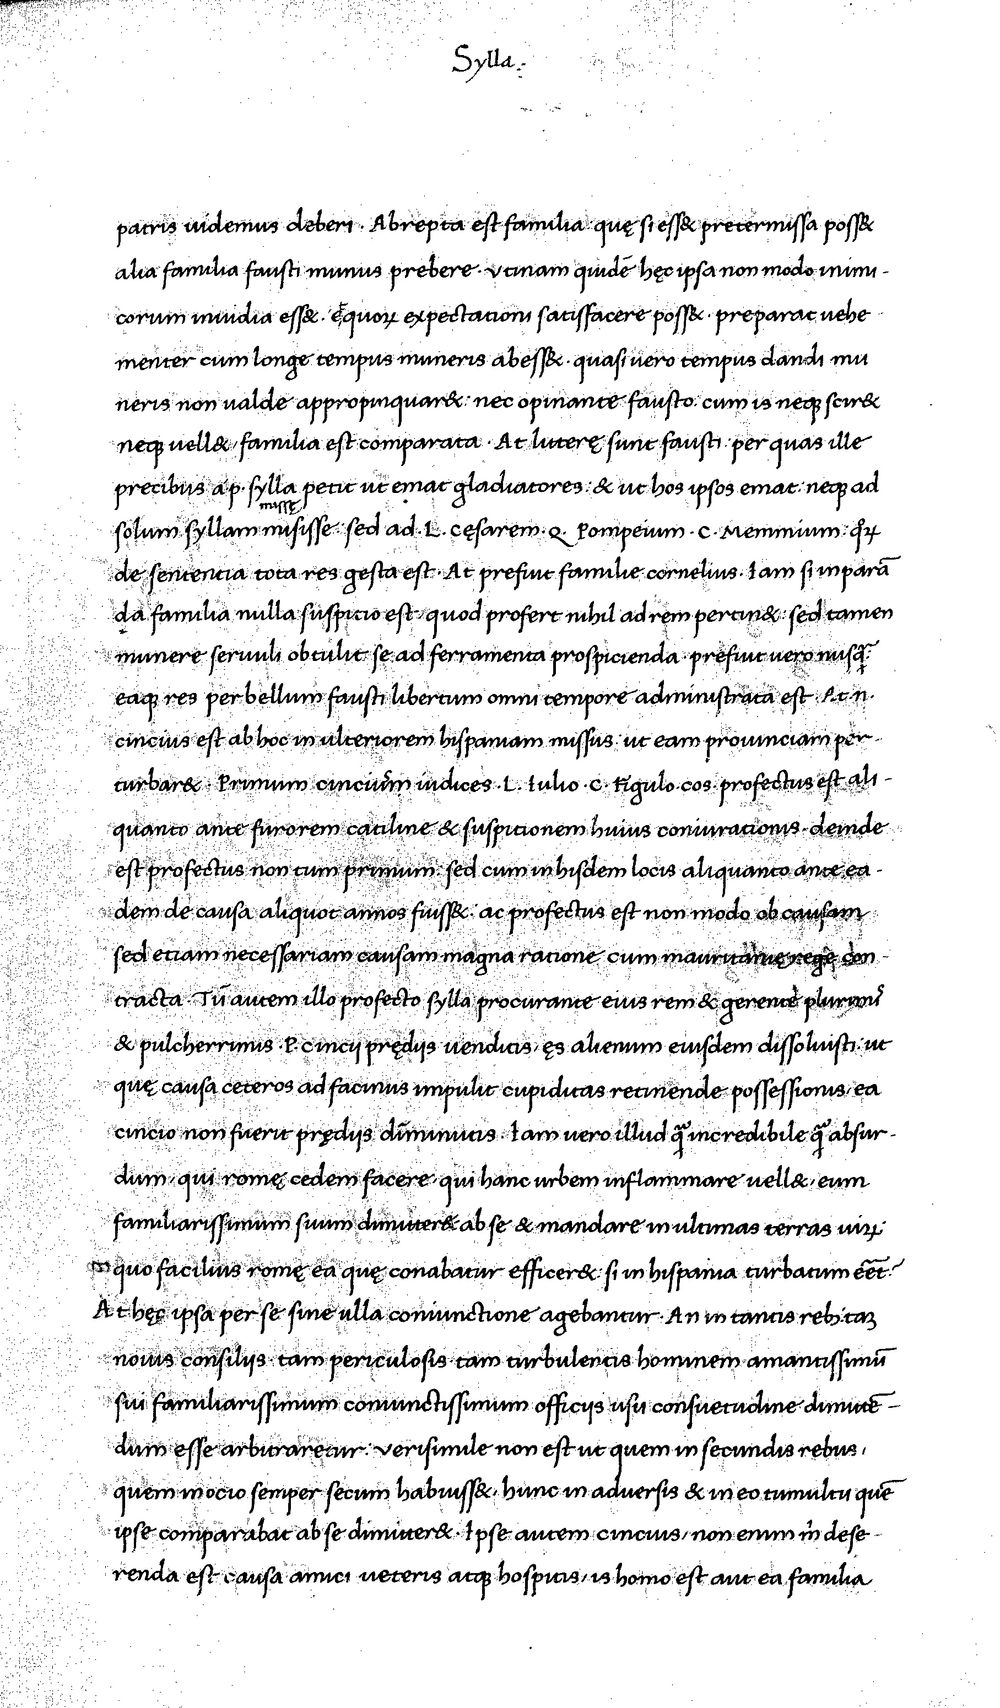 Sylla.
patris uidemus deberi. Abrepta est familia quę si ess& pretermissa poss&
alia familia fausti munus prebere. Vtinam quidē hęc ipsa non modo inimi-
corum inuidia ess&. ęquoꝝ expectationi satisfacere poss&. preparat uehe
menter cum longe tempus muneris abess&. quasi uero tempus dandi mu
neris non ualde appropinquar&. nec opinante fausto. cum is neqꝫ scir&
neqꝫ uell&/ familia est comparata. At litterę sunt fausti. per quas ille
precibus a p. sylla petit ut emat gladiatores: & ut hos ipsos emat: neqꝫ ad
missę
solum syllam misisse: sed ad. L. Cęsarem. Q. Pompeium. C. Memmium: qꝝ
de sententia tota res gesta est. At prefuit familie cornelius. Iam si in parā
da familia nulla suspitio est/ quod profert nihil ad rem pertin&: sed tamen
munere seruili obtulit se ad ferramenta prospicienda. prefuit uero nusꝗ̃.
eaqꝫ res per bellum fausti libertum omni tempore administrata est. At n.
cincius est ab hoc in ulteriorem hispaniam missus: ut eam prouinciam per
turbar&. Primum cincium iudices. L. Iulio. C. Figulo. cos. profectus est ali-
quanto ante furorem catiline & suspitionem huius coniurationis. deinde
est profectus non tum primum: sed cum in hisdem locis aliquanto ante ea-
dem de causa aliquot annos fuiss&: ac profectus est non modo ob causam
sed etiam necessariam causam magna ratione cum mauritanię rege con-
tracta. Tū autem illo profecto sylla procurante eius rem & gerente plurimis
& pulcherrimis. P. cincij prędijs uenditis/ ęs alienum eiusdem dissoluisti: ut
quę causa ceteros ad facinus impulit cupiditas retinende possessionis/ ea
cincio non fuerit prędijs diminutis. Iam uero illud ꝗ̃ incredibile ꝗ̃ absur-
dum/ qui romę cedem facere/ qui hanc urbem inflammare uell&/ eum
familiarissimum suum dimitter& ab se & mandare in ultimas terras uiꝝ.
quo facilius romę ea quę conabatur efficer& si in hispania turbatum eēt?
At hęc ipsa per se sine ulla coniunctione agebantur. An in tantis rebꝫ tam
nouis consilijs. tam periculosis. tam turbulentis hominem amantissimū
sui familiarissimum coniunctissimum officijs usu consuetudine dimittē-
dum esse arbitraretur. Verisimile non est ut quem in secundis rebus/
quem in ocio semper secum habuiss&/ hunc in aduersis & in eo tumultu quē
ipse comparabat ab se dimitter&. Ipse autem cincius/ non enim m̄ dese-
renda est causa amici ueteris atqꝫ hospitis/ is homo est aut ea familia